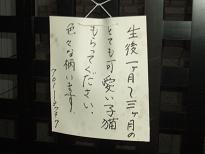 生後一ヶ月〜三ヶ月の
とても可愛い子猫
もらってください。
色々な柄います